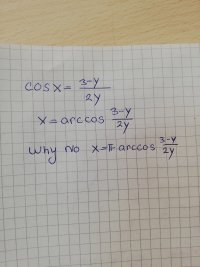 cosx = 3-y/2y
x = arccos 3-y/2y
Why no x=π-arccos 3-y/2y